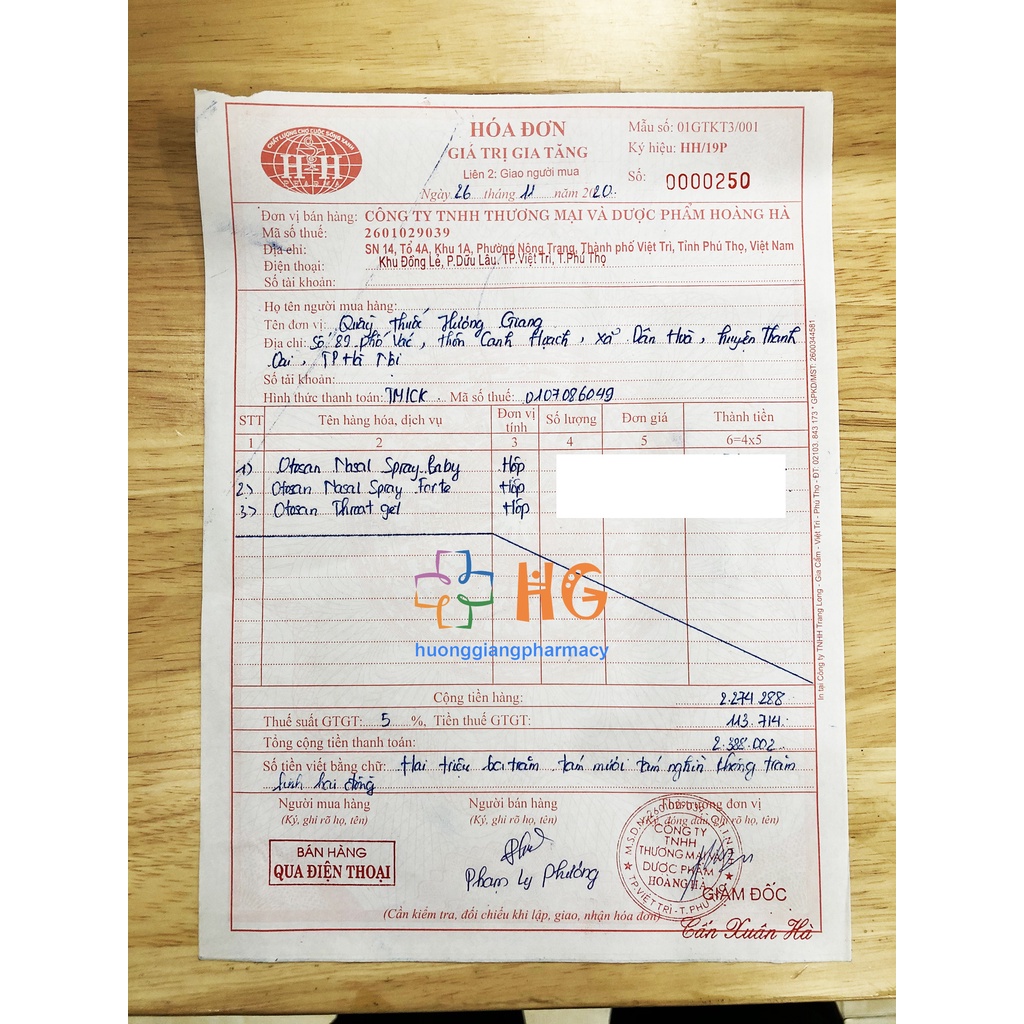 CHẤT LƯỢNG CHO CUỘC SỐNG XANH
H H
HÓA ĐƠN
GIÁ TRỊ GIA TĂNG
Liên 2: Giao người mua
Ngày 26 tháng 11 năm 2020
Mẫu số: 01GTKT3/001
Ký hiệu: HH/19P
Số: 0000250
Đơn vị bán hàng: CÔNG TY TNHH THƯƠNG MẠI VÀ DƯỢC PHẨM HOÀNG HÀ
Mã số thuế: 2601029039
Địa chỉ: SN 14, Tổ 4A, Khu 1A, Phường Nông Trang, Thành phố Việt Trì, Tỉnh Phú Thọ, Việt Nam
Điện thoại: Khu Đồng Lẻ, P.Dữu Lâu. TP.Việt Trì, T.Phú Thọ
Số tài khoản:
Họ tên người mua hàng:
Tên đơn vị: Quầy thuốc Hương Giang
Địa chỉ: Số 89 phố Vác, thôn Canh Hoạch, xã Dân Hoà, huyện Thanh
Oai, TP Hà Nội
Số tài khoản:
Hình thức thanh toán: TM/CK Mã số thuế: 0107086049
STT Tên hàng hóa, dịch vụ Đơn vị tính Số lượng Đơn giá Thành tiền
1 2 3 4 5 6=4x5
1) Otosan Nasal Spray Baby Hộp
2) Otosan Nasal Spray Forte Hộp
3) Otosan Throat gel Hộp
HG
huonggiangpharmacy
Cộng tiền hàng: 2.274.288
Thuế suất GTGT: 5 %, Tiền thuế GTGT: 113.714
Tổng cộng tiền thanh toán: 2.388.002
Số tiền viết bằng chữ: Hai triệu ba trăm tám mươi tám nghìn không trăm
linh hai đồng
Người mua hàng Người bán hàng Thủ trưởng đơn vị
(Ký, ghi rõ họ, tên) (Ký, ghi rõ họ, tên) (Ký, đóng dấu, ghi rõ họ, tên)
BÁN HÀNG
QUA ĐIỆN THOẠI
Phạm Ly Phương
CÔNG TY
TNHH
THƯƠNG MẠI VÀ
DƯỢC PHẨM
HOÀNG HÀ
TP.VIỆT TRÌ - T.PHÚ THỌ
GIÁM ĐỐC
Cấn Xuân Hà
(Cần kiểm tra, đối chiếu khi lập, giao, nhận hóa đơn)
In tại Công ty TNHH Trang Long - Gia Cẩm - Việt Trì - Phú Thọ - ĐT: 02103. 843 173 * GPKD/MST: 2600344581